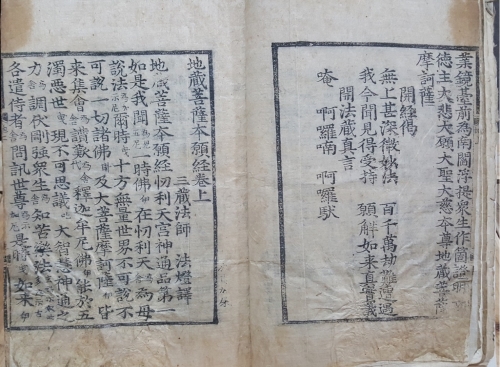 業鏡臺前為南閻浮提衆生作箇證明
德主大悲大願大聖大慈本尊地藏菩薩
摩訶薩
開經偈
無上甚深微妙法 百千萬劫難遭遇
我今聞見得受持 願解如來眞實義
開法藏真言
唵 阿羅喃 阿羅馱
地藏菩薩本願經卷上
三藏法師 法燈譯
地藏菩薩本願經忉利天宮神通品第一
如是我聞 一時佛 在忉利天 為母
說法 爾時 十方無量世界不可說不
可說一切諸佛 及大菩薩摩訶薩 皆
來集會 讚歎 釋迦牟尼佛 能於五
濁惡世 現不可思議 大智慧神通之
力 調伏剛強衆生 知苦樂法
各遣侍者 問訊世尊 是時 如來